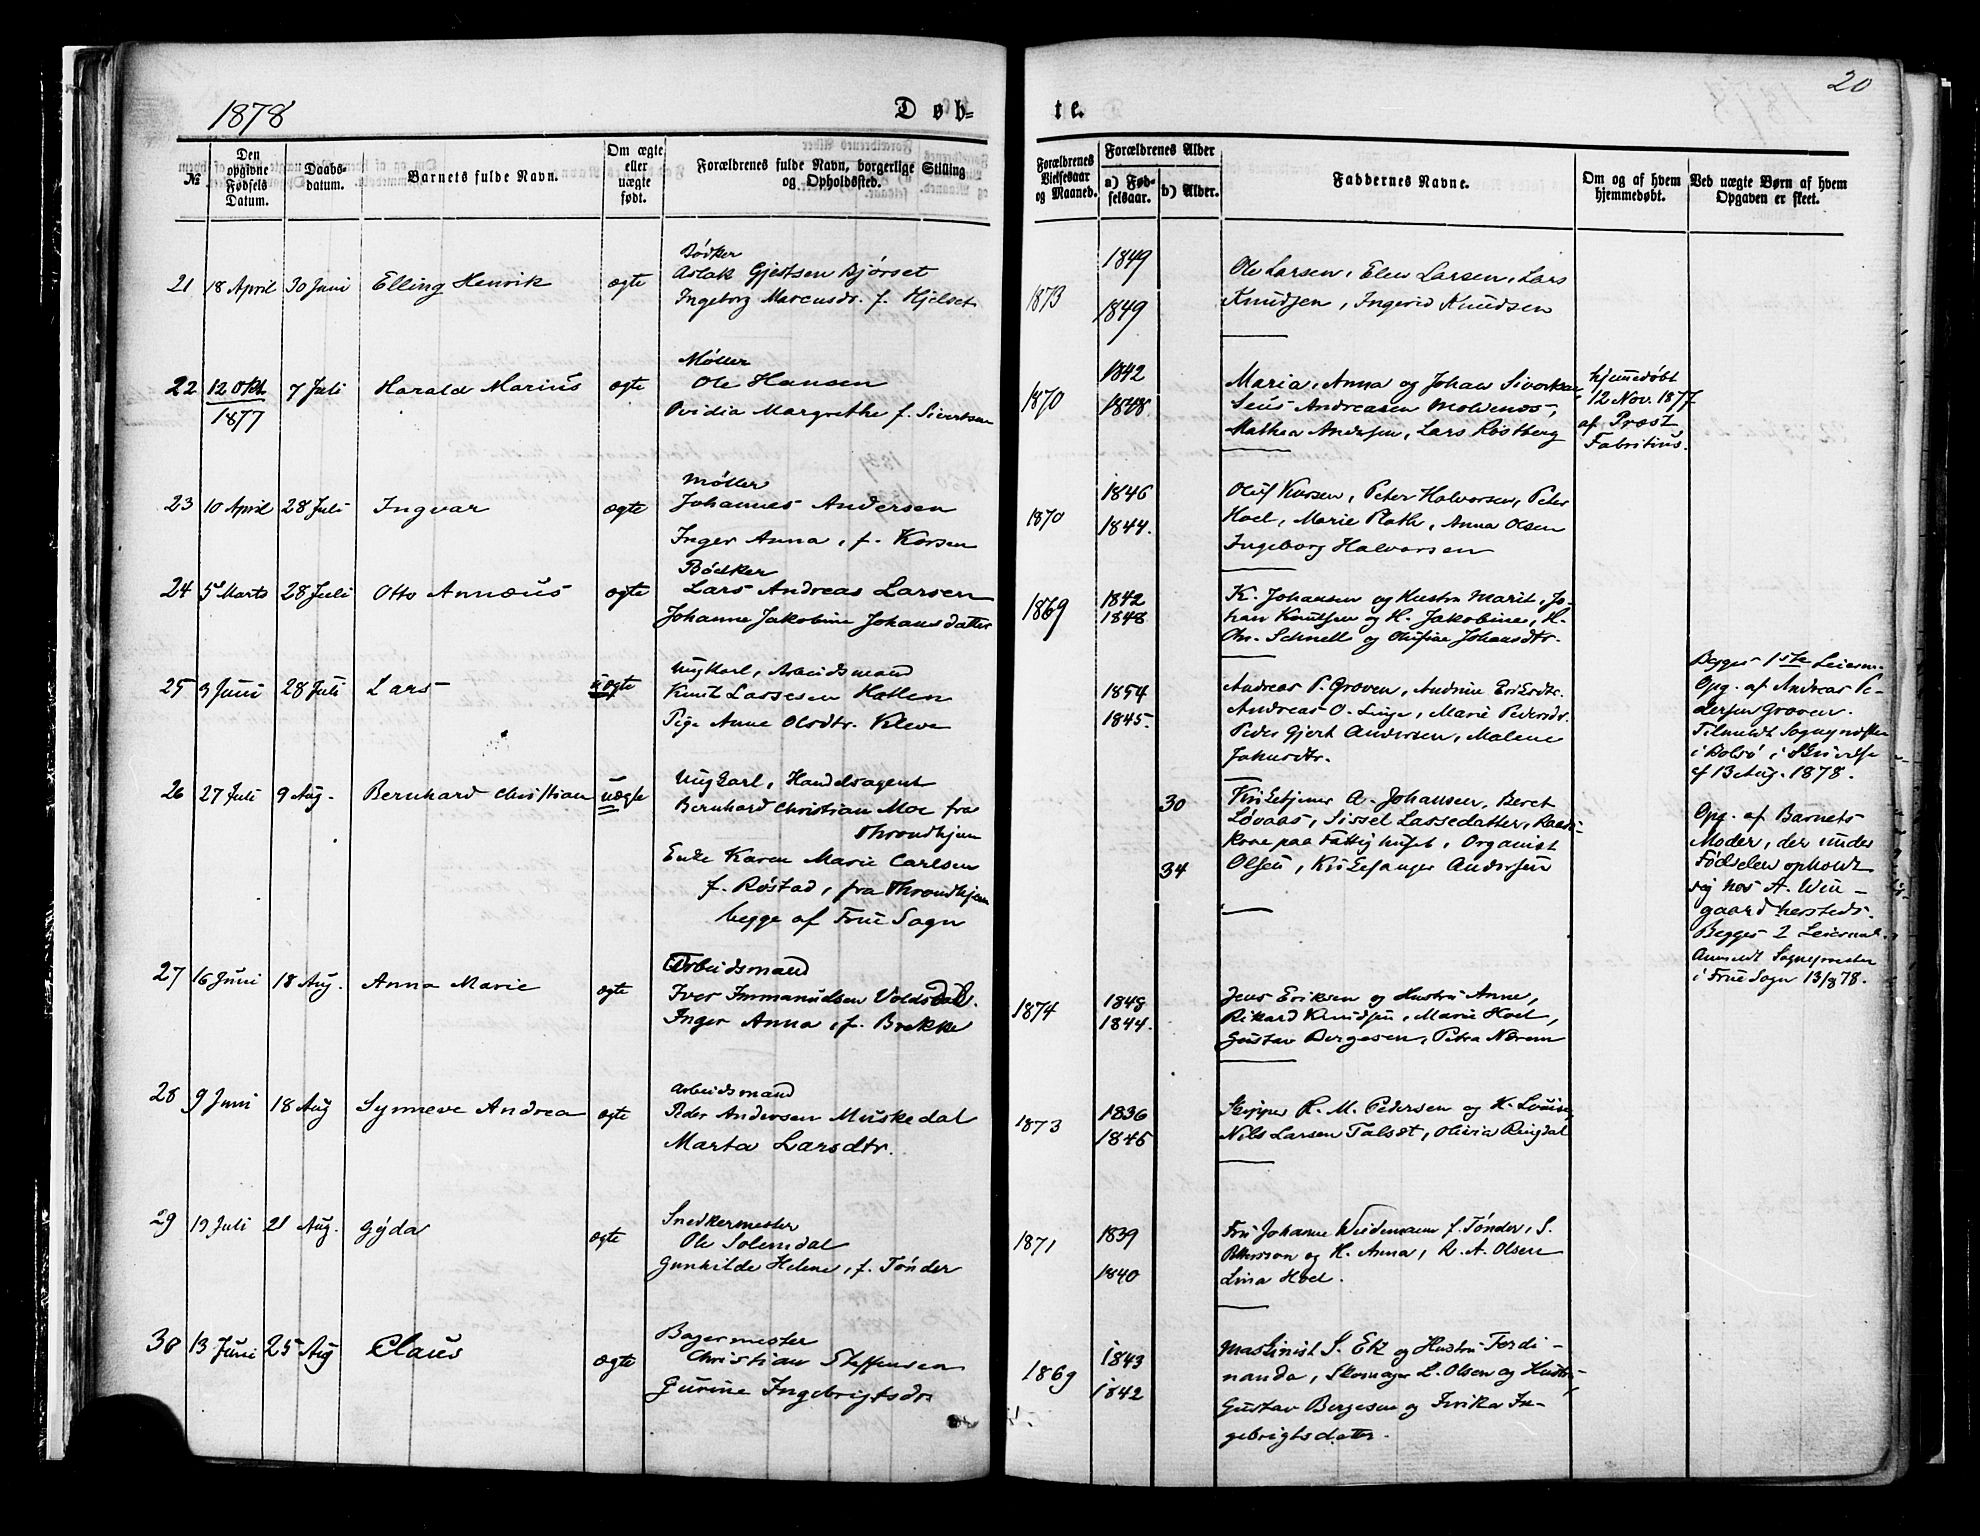 1878
Døb-
te.
20
№
Den opgivne Fødsels Datum.
Daabs-datum.
Barnets fulde Navn.
Om ægte eller uægte født.
Forældrenes fulde Navn, borgerlige Stilling og Opholdssted.
Forældrenes Vielsesaar og Maaned.
Forældrenes Alder
a) Fød-selsaar.
b) Alder.
Faddernes Navne.
Om og af hvem hjemmedøbt.
Ved uægte Børn af hvem Opgaven er skeet.
21 18 April 30 Juni Elling Henrik ægte
Bødker
Aslak Gjertsen Bjørset
Ingeborg Marcusdr. f. Hjelset
1873
1849
1849
Ole Larsen, Elen Larsen, Lars
Knudsen, Ingerid Knudsen
22 12 Okt. 1877 7 Juli Harald Marius ægte
Møller
Ole Hansen
Ovidia Margrethe f. Sivertsen
1870
1842
1848
Maria, Anna og Johan Sivertsen,
Jens Andreasen Molvenæs,
Mathea Andersen, Lars Røstberg
hjemmedøbt
12 Nov. 1877
af Præst
Fabritius.
23 10 April 28 Juli Ingvar ægte
Møller
Johannes Andersen
Inger Anna, f. Korsen
1870
1846
1844.
Oluf Korsen, Peter Halvorsen, Peter
Hoel, Marie Plath, Anna Olsen
Ingeborg Halvorsen
24 5 Marts 28 Juli Otto Annæus ægte
Bødker
Lars Andreas Larsen
Johanne Jakobine Johansdatter
1869
1842
1848
K. Johansen og Hustru Marit, Jo-
han Knutsen og H. Jakobine, H.
Chr. Schnell og Olufine Johansdtr.
25 3 Juni 28 Juli Lars uægte
Ungkarl, Arbeidsmand
Knut Lassesen Hatlen
Pige Anne Olsdtr. Kleve
1854
1845.
Andreas P. Groven, Andrine Eriksdtr.
Andreas O. Linge, Marie Pedersdr.
Peder Gjert Andersen, Malene
Jakobsdtr.
Begges 1ste Leierm.
Opg. af Andreas Pe-
dersen Groven.
Tilmeldt Sognepræsten
i Bolsø i Skrivelse
af 13 Aug. 1878.
26 27 Juli 9 Aug. Bernhard Christian uægte
Ungkarl, Handelsagent
Bernhard Christian Moe fra
Throndhjem
Enke Karen Marie Carlsen
f. Røstad, fra Throndhjem
begge af Frue Sogn
30
34
Kirketjener A. Johansen, Beret
Løvaas, Sissel Lassedatter,
kone paa Fattighuset, Organist
Olsen, Kirkesanger Andersen
Opg. af Barnets
Moder, der under
Fødselen opholdt
sig hos A. Win-
gaard hersteds.
Begges 2 Leiermal.
Anmeldt Sognepræsten
i Frue Sogn 13/8 78.
27 16 Juni 18 Aug. Anna Marie ægte
Arbeidsmand
Iver Immanudsen Voldsdal.
Inger Anna, f. Brekke
1874
1848
1844.
Jens Eriksen og Hustru Anne,
Rikard Knudsen, Marie Hoel,
Gustav Børgesen, Petra Nerem
28 9 Juni 18 Aug Synneve Andrea ægte
Arbeidsmand
Peder Andersen Muskedal
Marta Larsdtr.
1873
1836
1845
Skipper H. M. Pedersen og H. Louise,
Nils Larsen Talset, Olivia Ringdal
29 19 Juli 21 Aug. Gyda ægte
Snedkermester
Ole Solemdal
Gunhilde Helene, f. Tønder
1871
1839
1840
Fru Johanne Weidemann f. Tønder, S.
Pettersson og H. Anna, R. A. Olsen
Lina Hoel.
30 13 Juni 25 Aug Claus ægte
Bagermester
Christian Steffensen
Gurine Ingebrigtsdr.
1869
1843
1842
Maskinist S. Ek og Hustru Ferdi-
nanda, Skomager L. Olsen og Hustru,
Gustav Børgesen og Fredrika In-
gebrigtsdatter.